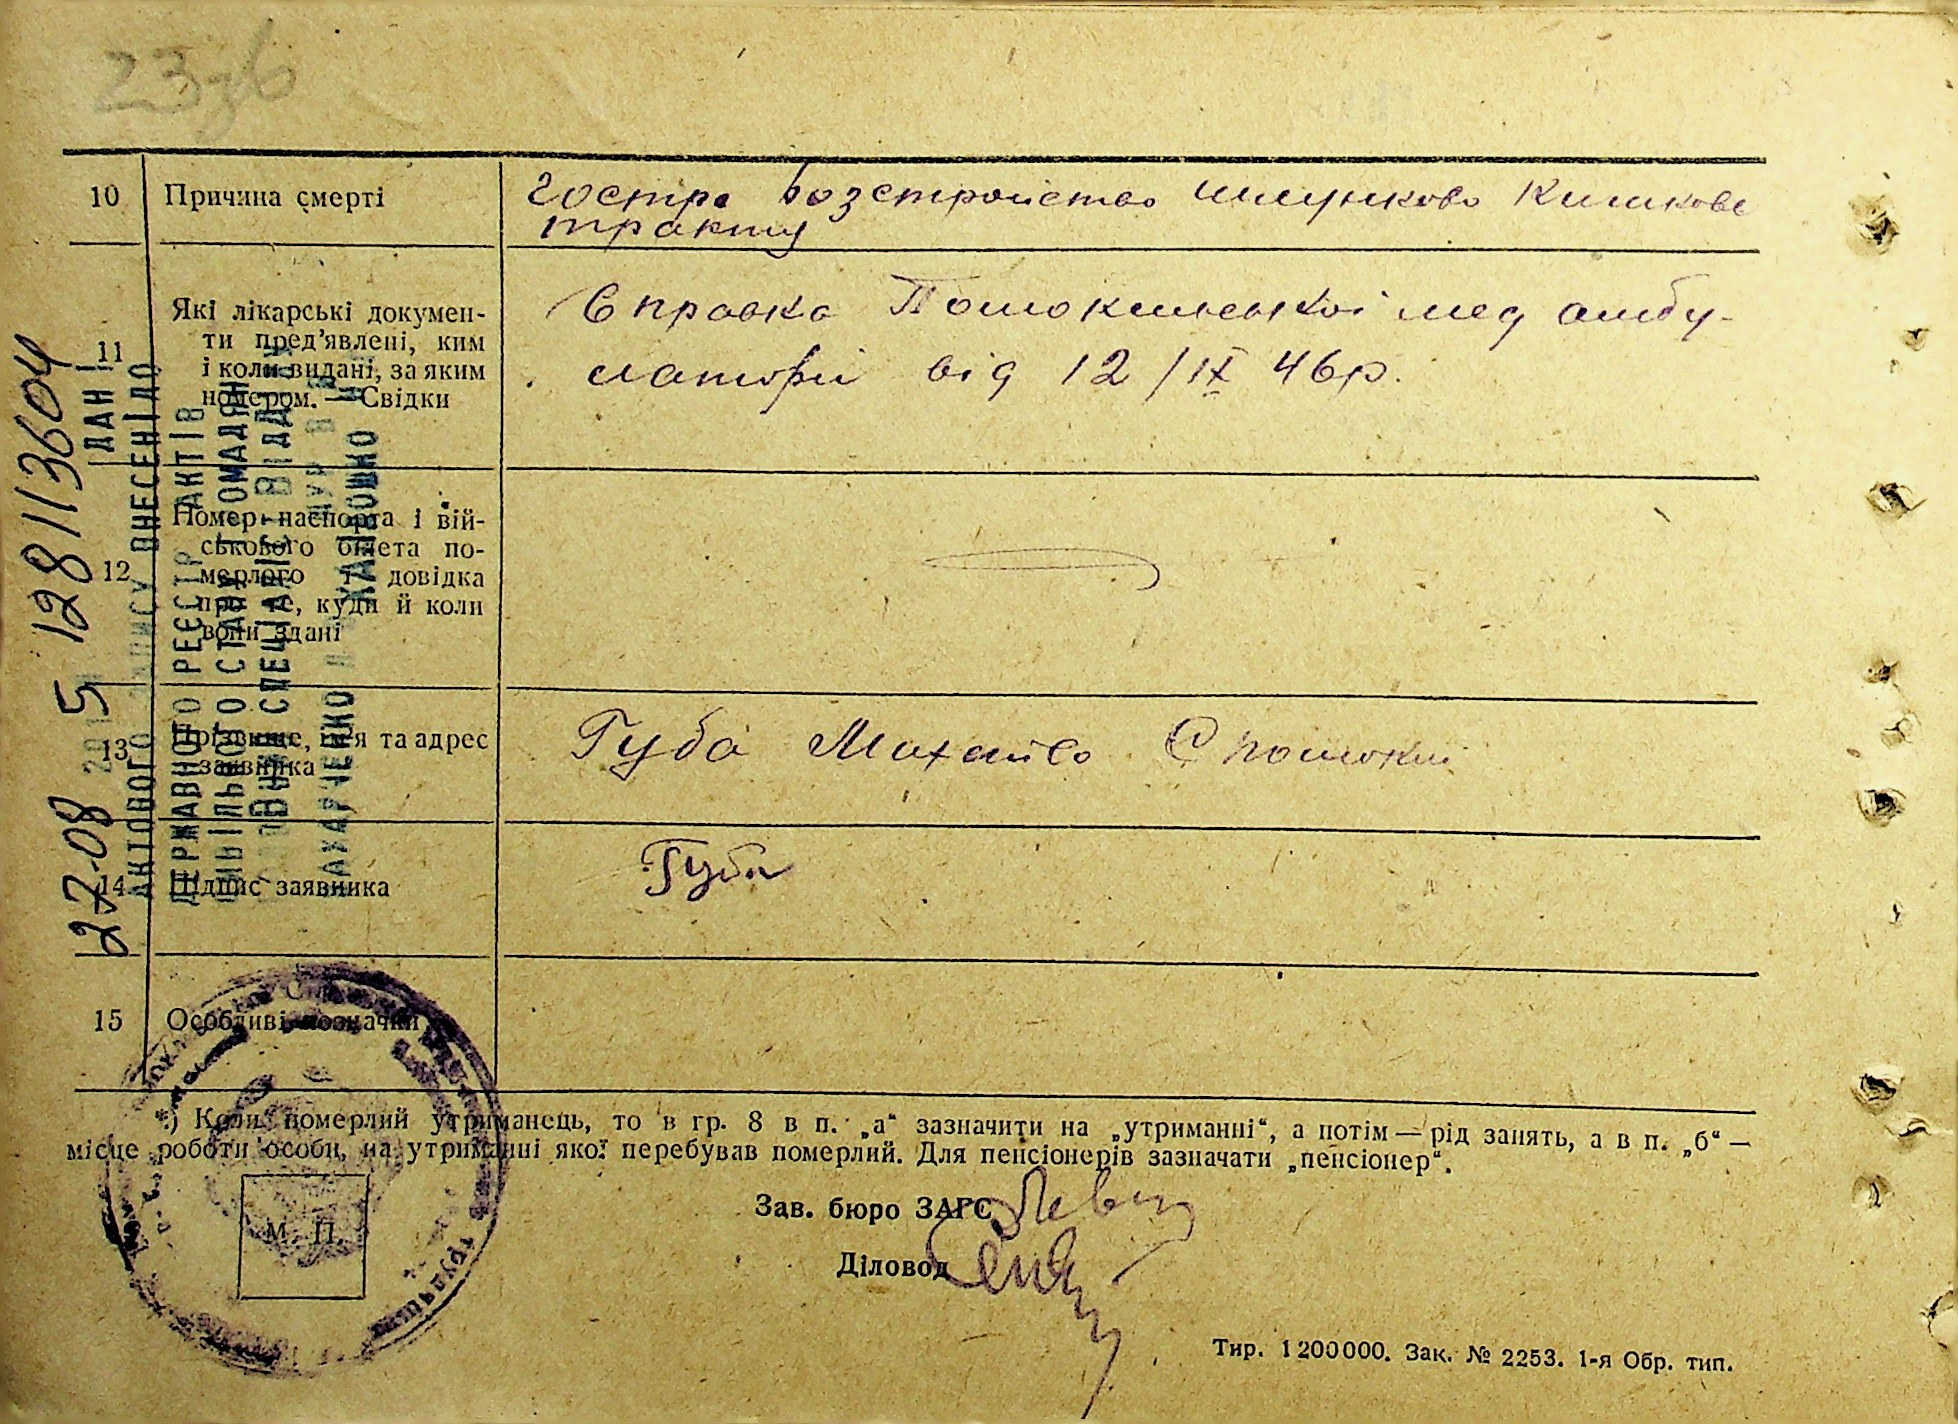 10 Причина смерті
гостре розстройство шлунково кишкове
тракту
11 Які лікарські докумен-
ти пред'явлені, ким
і коли видані, за яким
номером. — Свідки
Справка мед амбу-
латорії від 12/IX 46р.
12 Номер паспорта і вій-
ськового білета по-
мерлого і довідка
про те, куди й коли
вони здані
13 Прізвище, ім'я та адрес
заявника
Губа Михайло
14 Підпис заявника
Губа
15 Особливі позначки
*) Коли померлий утриманець, то в гр. 8 в п. „а“ зазначити на „утриманні“, а потім — рід занять, а в п. „б“ —
місце роботи особи, на утриманні якої перебував померлий. Для пенсіонерів зазначати „пенсіонер“.
Зав. бюро ЗАГС
Діловод
М. П.
Тир. 1200000. Зак. № 2253. 1-я Обр. тип.
ДАНІ
АКТОВОГО ЗАПИСУ ВНЕСЕНІ ДО
ДЕРЖАВНОГО РЕЄСТРУ АКТІВ
ЦИВІЛЬНОГО СТАНУ ГРОМАДЯН
27-08 5 128113604